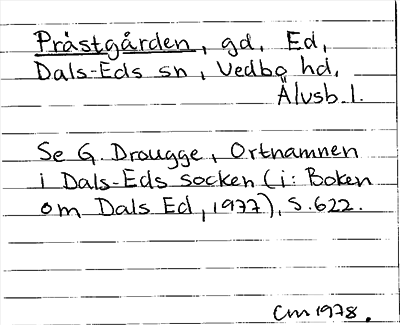 Prästgården, gd, Ed,
Dals-Eds sn, Vedbo hd,
Älvsb. l.
Se G. Drougge, Ortnamnen
i Dals-Eds socken (i: Boken
om Dals Ed, 1977), s. 622.
CM 1978.